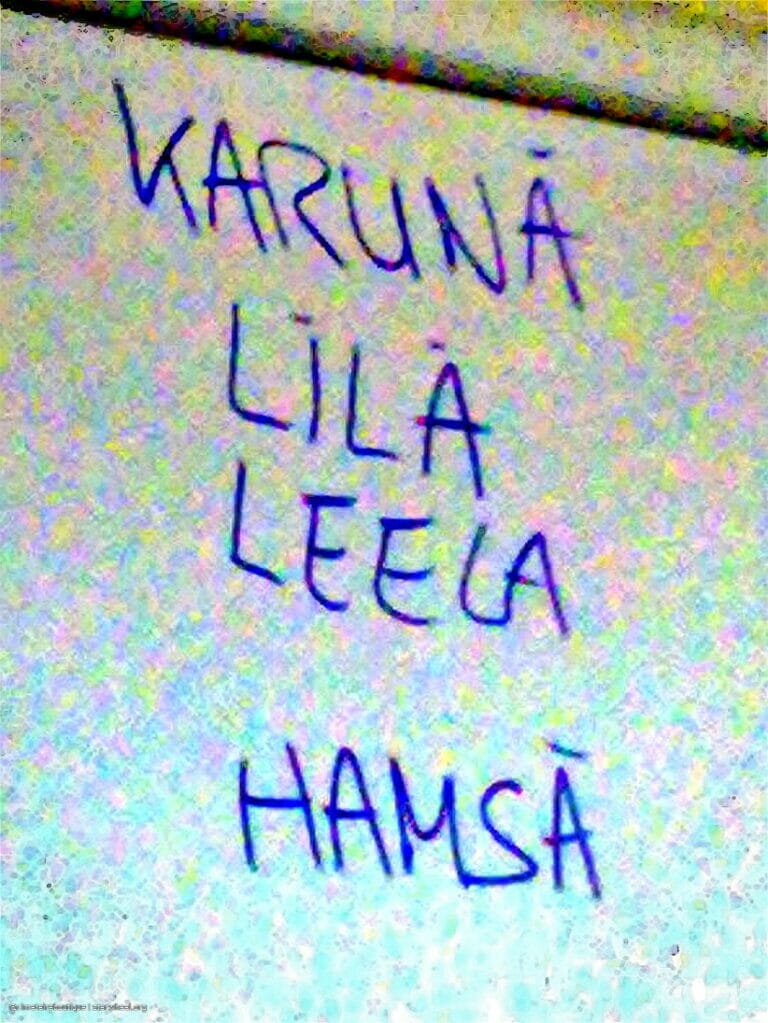 KARUNĀ
LĪLĀ
LEELA
HAMSĀ